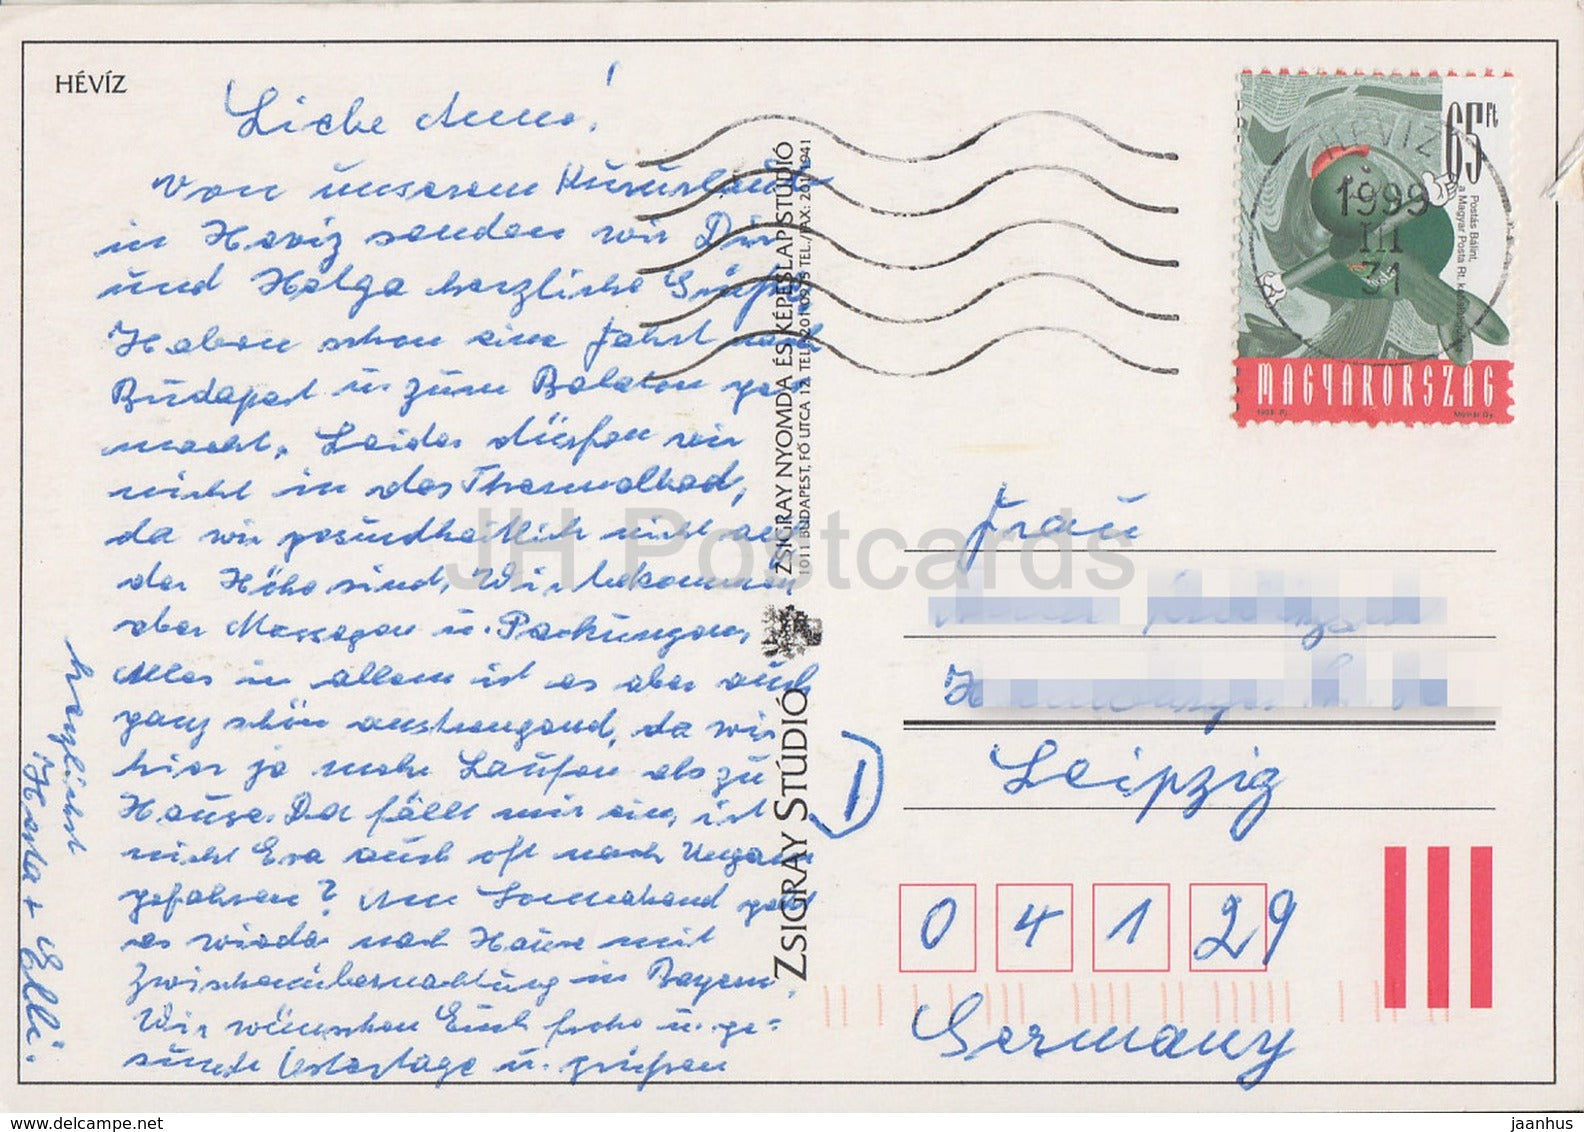 HÉVÍZ
Liebe Anne!
Von unserem Kururlaub
in Heviz senden wir Dir
und Helga herzliche Grüße
Haben schon eine Fahrt nach
Budapest u. zum Balaton ge-
macht. Leider dürfen wir
nicht in das Thermalbad,
da wir gesundheitlich nicht auf
der Höhe sind. Wir bekommen
aber Massagen u. Packungen,
Alles in allem ist es aber auch
ganz schön anstrengend, da wir
hier ja mehr Laufen als zu
Hause. Da fällt mir ein, ist
nicht Eva auch oft nach Ungarn
gefahren? Am Sonnabend geht
es wieder nach Hause mit
Zwischenübernachtung in Bayern.
Wir wünschen Euch frohe u. ge-
sunde Ostertage u. grüßen
herzlichst
Herta + Elli.
ZSIGRAY STÚDIÓ
ZSIGRAY NYOMDA ÉS KÉPESLAP STÚDIÓ
1011 BUDAPEST, FŐ UTCA 12.
HÉVÍZ
1999
III
31
65 Ft
Postás Bálint,
MAGYARORSZÁG
Frau
Leipzig
1
0 4 1 29
Germany
JH Postcards
www.delcampe.net
jaanhus